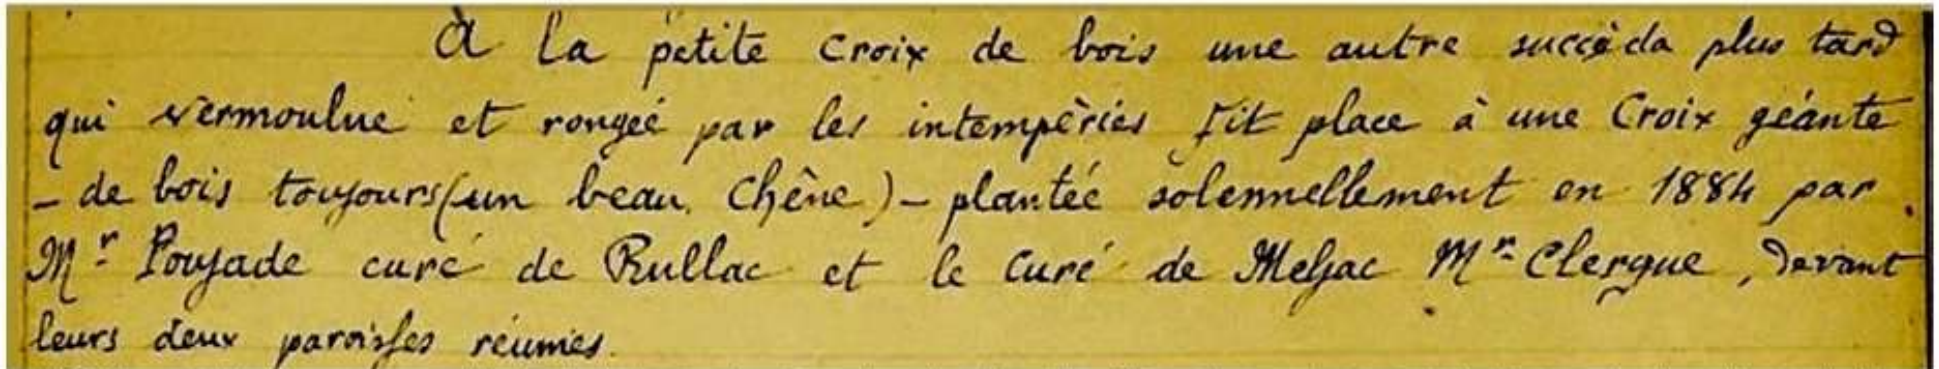 À la petite Croix de bois une autre succèda plus tard
qui vermoulue et rongée par les intempèries fit place à une Croix géante
- de bois toujours (un beau Chêne) - plantée solennellement en 1884 par
Mr Poujade curé de Rullac et le Curé de Meljac Mr Clergue, devant
leurs deux paroisses réunies.